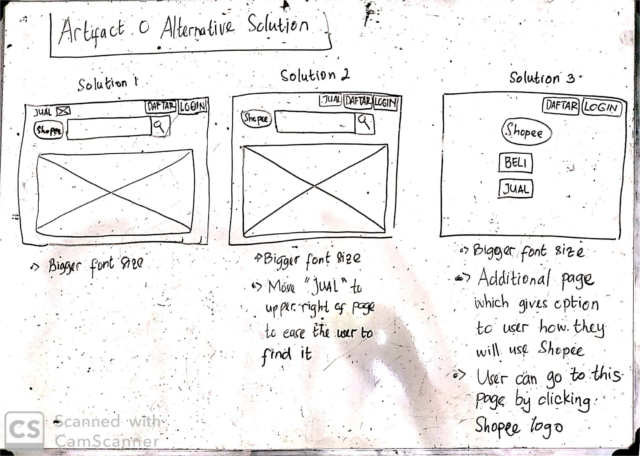 Artifact 0 Alternative Solution
Solution 1
JUAL
DAFTAR
LOGIN
Shopee
-> Bigger font size
Solution 2
JUAL
DAFTAR
LOGIN
Shopee
-> Bigger font size
-> Move "JUAL" to
upper right of page
to ease the user to
find it
Solution 3
DAFTAR
LOGIN
Shopee
BELI
JUAL
-> Bigger font size
-> Additional page
which gives option
to user how they
will use Shopee
-> User can go to this
page by clicking
Shopee logo
CS
Scanned with
CamScanner